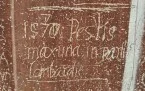 1570. Pestis
maxima in parti
lombardie